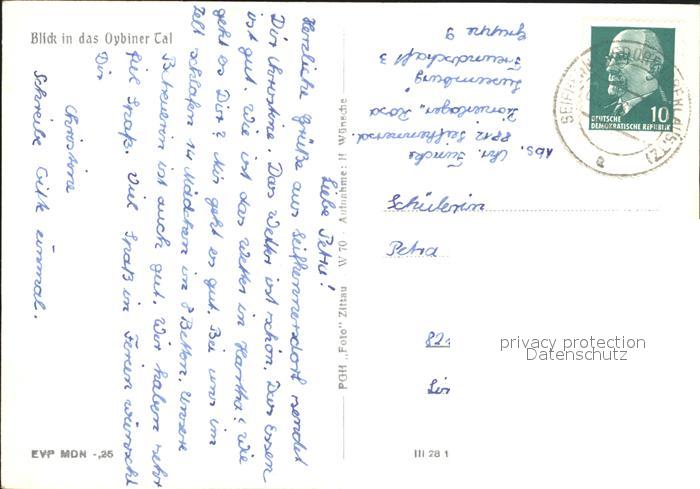 Blick in das Oybiner Tal
Liebe Petra!
Herzliche Grüße aus Seifhennersdorf sendet
Dir Christine. Das Wetter ist schön. Das Essen
ist gut. Wie ist das Wetter in Hartha? Wie
geht es Dir? Mir geht es gut. Bei uns im
Zelt schlafen 14 Mädchen in 8 Betten. Unsere
Betreuerin ist auch gut. Wir haben sehr
viel Spaß. Viel Spaß in Ferien wünscht
Dir
Christine
Schreibe bitte einmal.
EVP MDN -,25
PGH „Foto" Zittau W 70 · Aufnahme: H Wünsche
III 28 1
Abs. Chr. Funcke
8812 Seifhennersd.
Pionierlager „Rosa
Luxemburg"
Freundschaft 3
Gruppe 9
Schülerin
Petra
82
privacy protection
Datenschutz
10
DEUTSCHE
DEMOKRATISCHE REPUBLIK